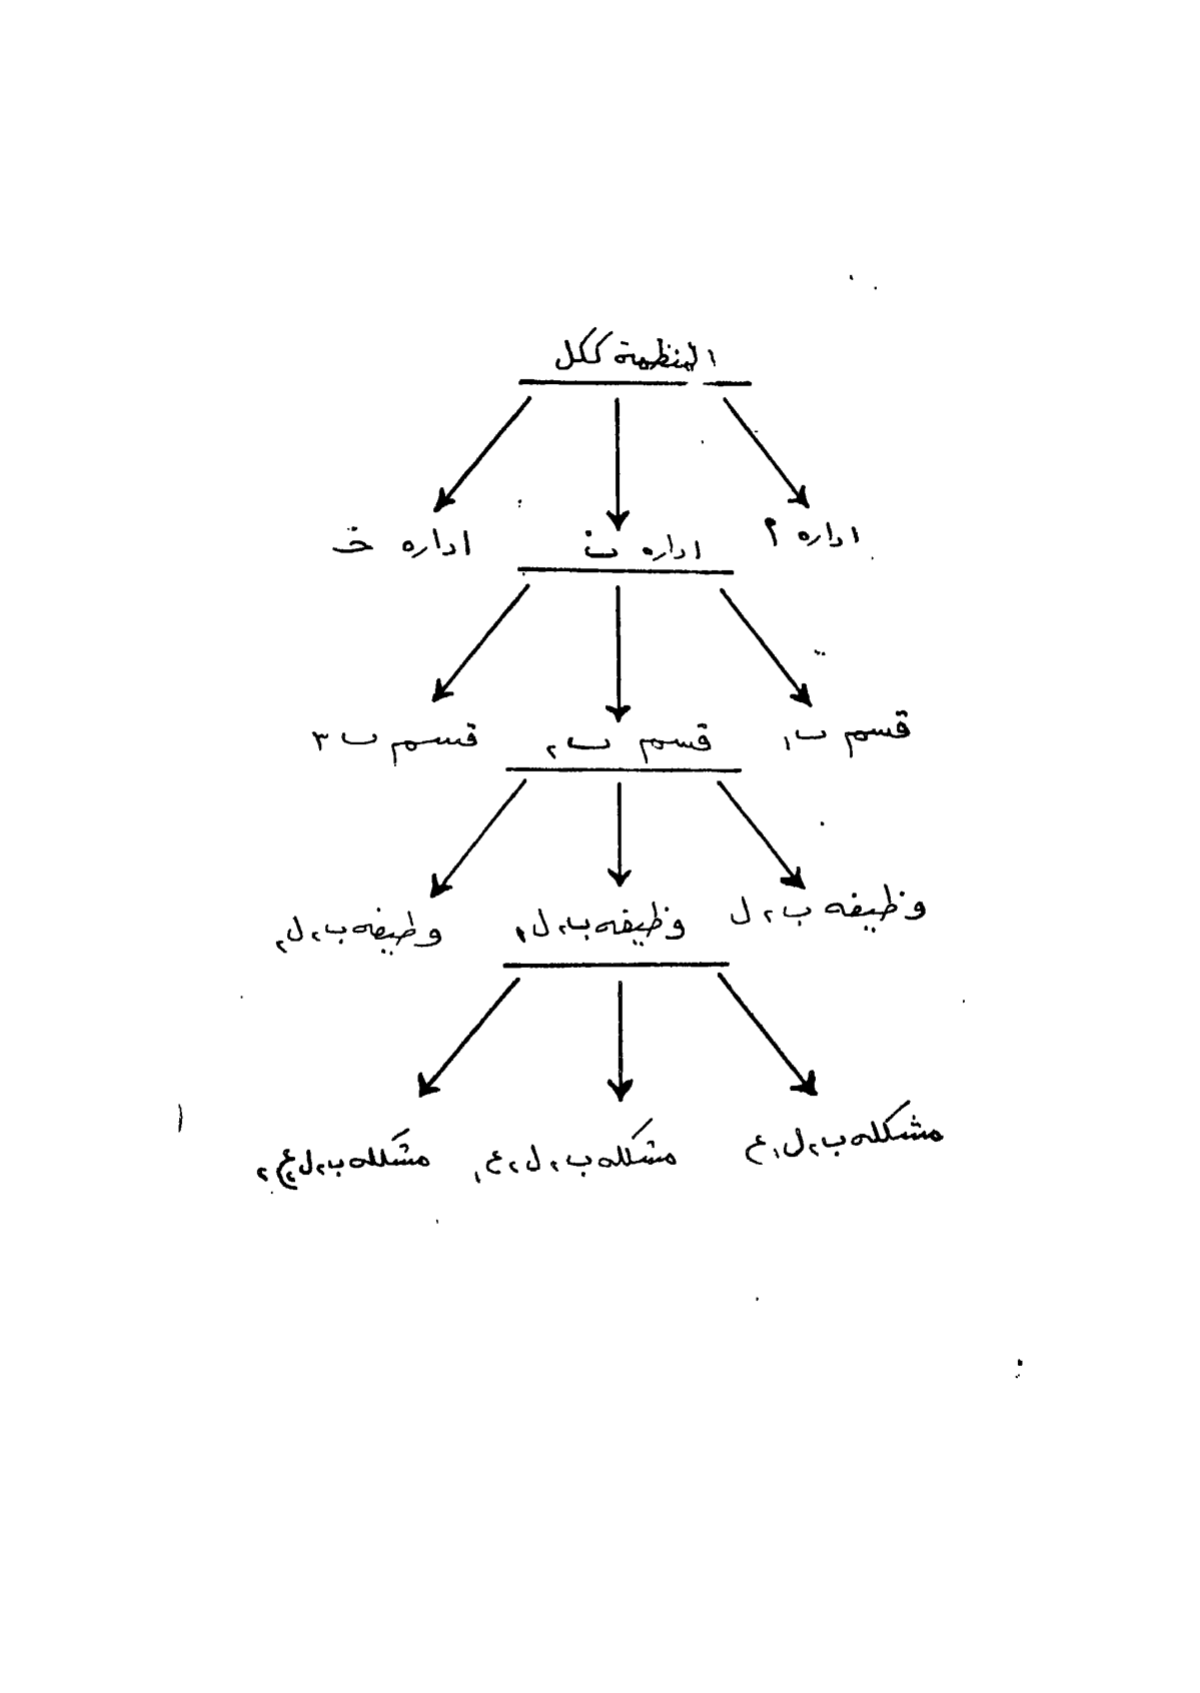 المنظمة ككل
اداره أ اداره ب اداره خ
قسم ب١ قسم ب٢ قسم ب ٣
وظيفه ب٢ ل وظيفه ب٢ ل١ وظيفه ب٢ ل٢
مشكله ب٢ ل١ ع مشكله ب٢ ل٢ ع١ مشكله ب٢ ل ع٢